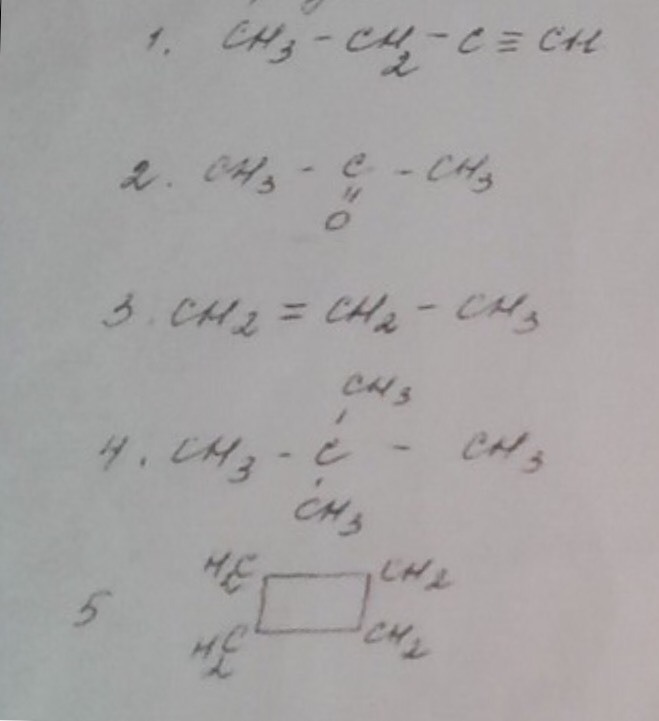 1. CH3 - CH2 - C ≡ CH
2. CH3 - C - CH3
=
O
3. CH2 = CH2 - CH3
CH3
4. CH3 - C - CH3
CH3
H2C CH2
5
H2C CH2